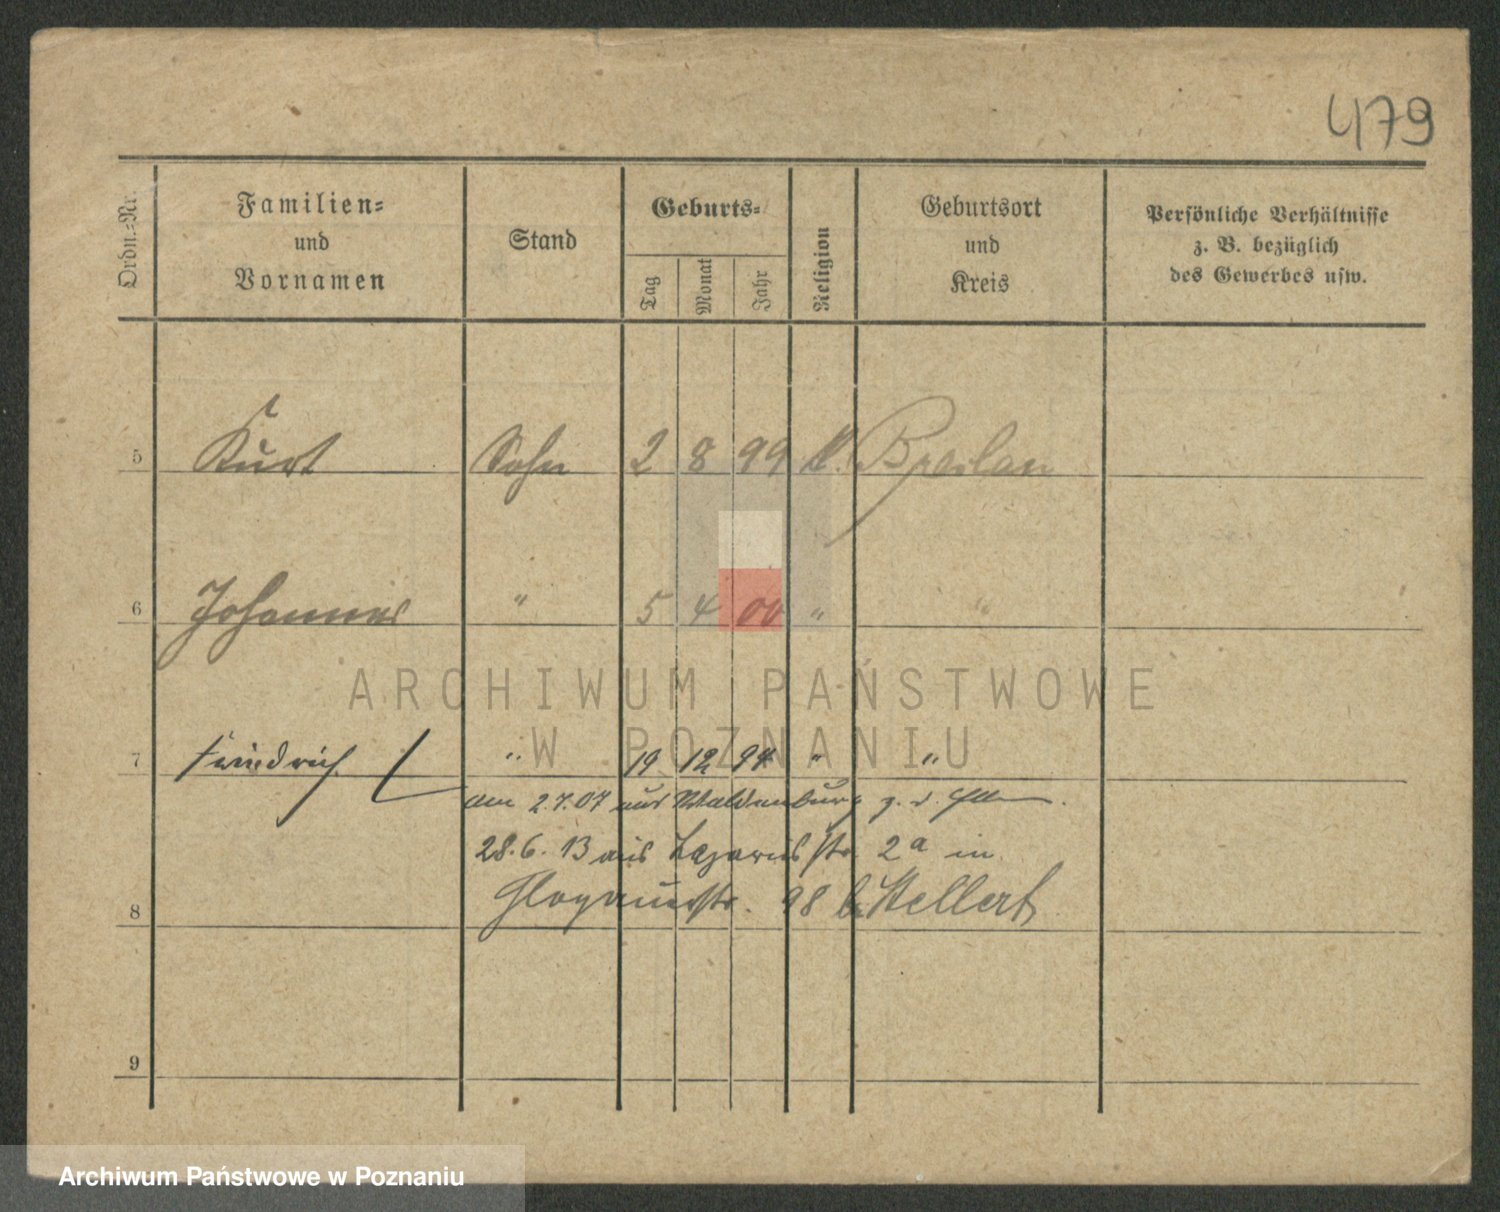 479
Ordn.-Nr.
Familien-
und
Vornamen
Stand
Geburts-
Tag
Monat
Jahr
Religion
Geburtsort
und
Kreis
Persönliche Verhältnisse
z. B. bezüglich
des Gewerbes usw.
5 Kurt Sohn 2 8 99 k. Breslau
6 Johannes " 5 4 00 " "
ARCHIWUM PAŃSTWOWE
W POZNANIU
7 Friedrich " 19 12 94 " "
am 2.7.07 aus Waldenburg z. d.
28.6.13 aus Lazarusstr 2a in
8 Glogauerstr. 98 b.
9
Archiwum Państwowe w Poznaniu